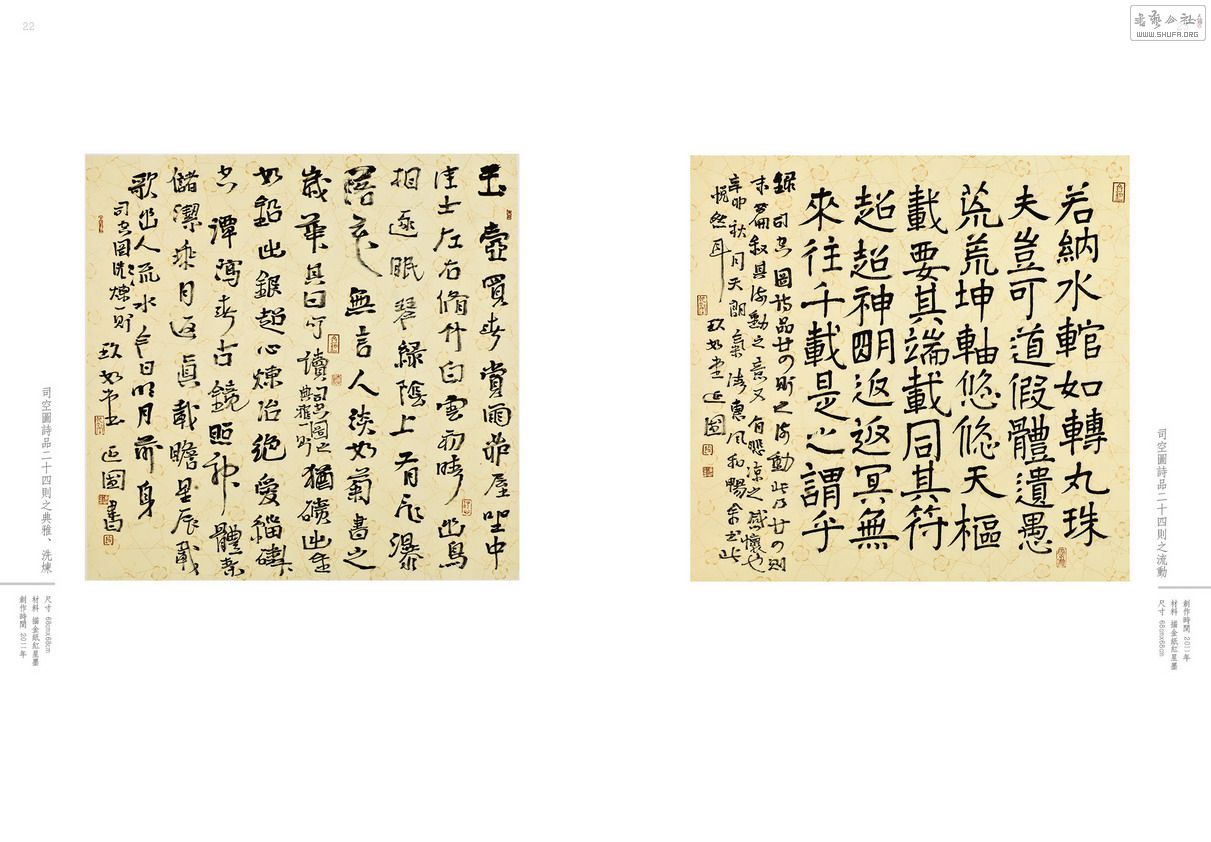 22
书艺公社
WWW.SHUFA.ORG
若納水輨如轉丸珠
夫豈可道假體遺愚
荒荒坤軸悠悠天樞
載要其端載同其符
超超神明返返冥無
來往千載是之謂乎
錄司空圖詩品廿四則之流動此乃廿四則
末篇叙其流動之意又有悲涼之感懷也
辛卯秋月天朗氣清惠風和暢余書此
悅然耳
玉壺買春賞雨茆屋坐中
佳士左右脩竹白雲初晴幽鳥
相逐眠琴綠陰上有飛瀑
落花無言人淡如菊書之
歲華其曰可讀司空圖之典雅一則猶礦出金
如鉛出銀超心煉冶絕愛緇磷
空潭瀉春古鏡照神體素
儲潔乘月返真載瞻星辰載
歌幽人流水今日明月前身
司空圖洗煉一則
司空圖詩品二十四則之典雅、洗煉
尺寸 68cmx68cm
材料 描金紙紅星墨
創作時間 2011年
司空圖詩品二十四則之流動
創作時間 2011年
材料 描金紙紅星墨
尺寸 68cmx68cm